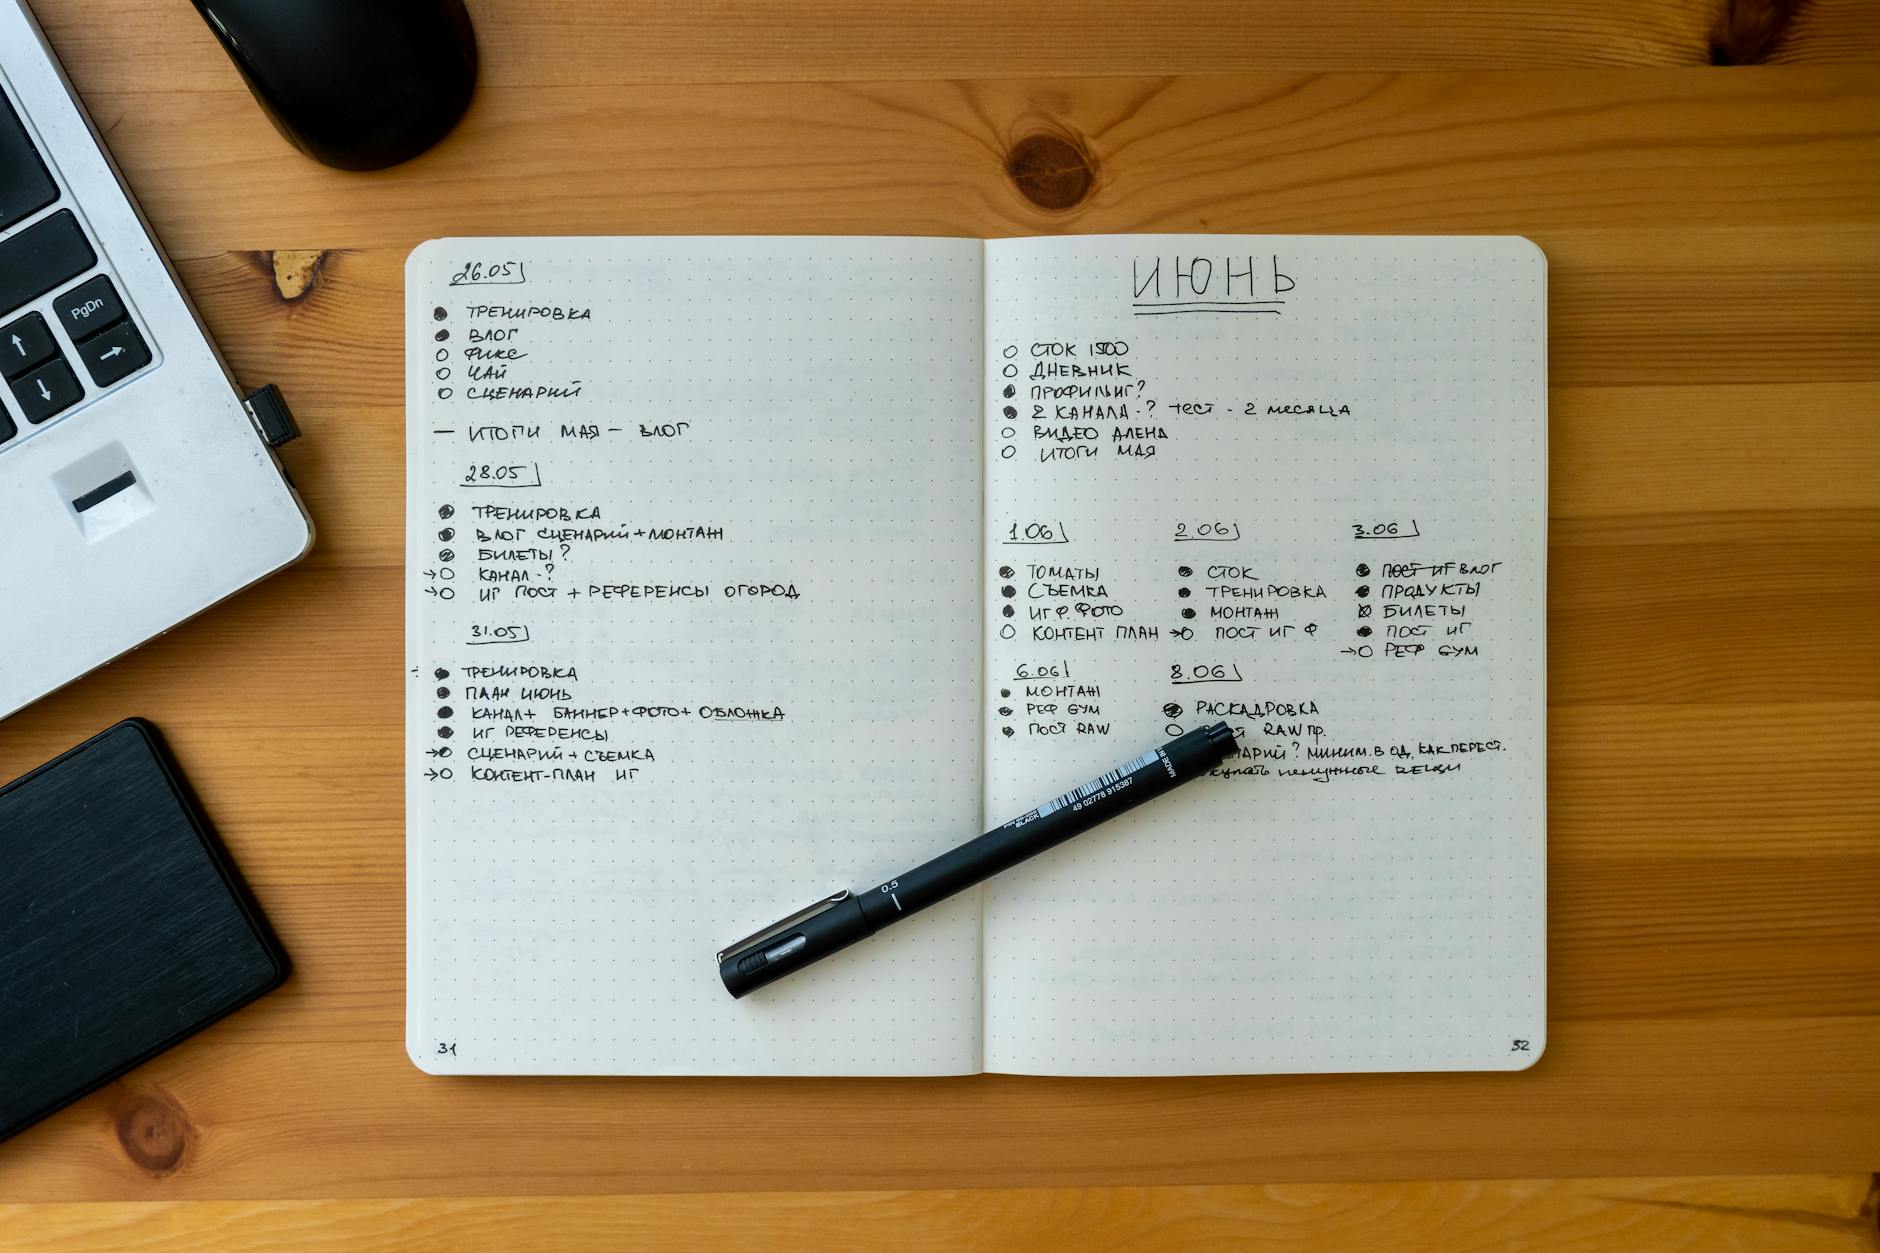 PgDn
26.05
ТРЕНИРОВКА
ВЛОГ
ФИКС
ЧАЙ
СЦЕНАРИЙ
— ИТОГИ МАЯ — ВЛОГ
28.05
ТРЕНИРОВКА
ВЛОГ СЦЕНАРИЙ + МОНТАЖ
БИЛЕТЫ?
КАНАЛ -?
ИГ ПОСТ + РЕФЕРЕНСЫ ОГОРОД
31.05
ТРЕНИРОВКА
ПЛАН ИЮНЬ
КАНАЛ + БАННЕР + ФОТО + ОБЛОЖКА
ИГ РЕФЕРЕНСЫ
СЦЕНАРИЙ + СЪЕМКА
КОНТЕНТ-ПЛАН ИГ
31
ИЮНЬ
СТОК 1500
ДНЕВНИК
2 КАНАЛА -? ТЕСТ - 2 месяца
ВИДЕО АЛЕНА
ИТОГИ МАЯ
1.06
ТОМАТЫ
СЪЕМКА
ИГ Ф ФОТО
КОНТЕНТ ПЛАН
2.06
СТОК
ТРЕНИРОВКА
МОНТАЖ
ПОСТ ИГ Ф
3.06
ПОСТ ИГ ВЛОГ
ПРОДУКТЫ
БИЛЕТЫ
ПОСТ ИГ
РЕФ GYM
6.06
МОНТАЖ
РЕФ GYM
ПОСТ RAW
8.06
РАСКАДРОВКА
RAW пр.
? МИНИМ. В ОД. КАК ПЕРЕСТ.
ненужные вещи
32
MADE IN
49 02778 915387
BLACK
0.5